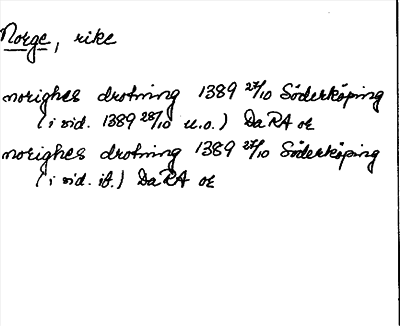 Norge, rike
norighes drotning 1389 27/10 Söderköping
(i vid. 1389 28/10 u.o.) DaRA or
norighes drotning 1389 27/10 Söderköping
(i vid. it.) DaRA or